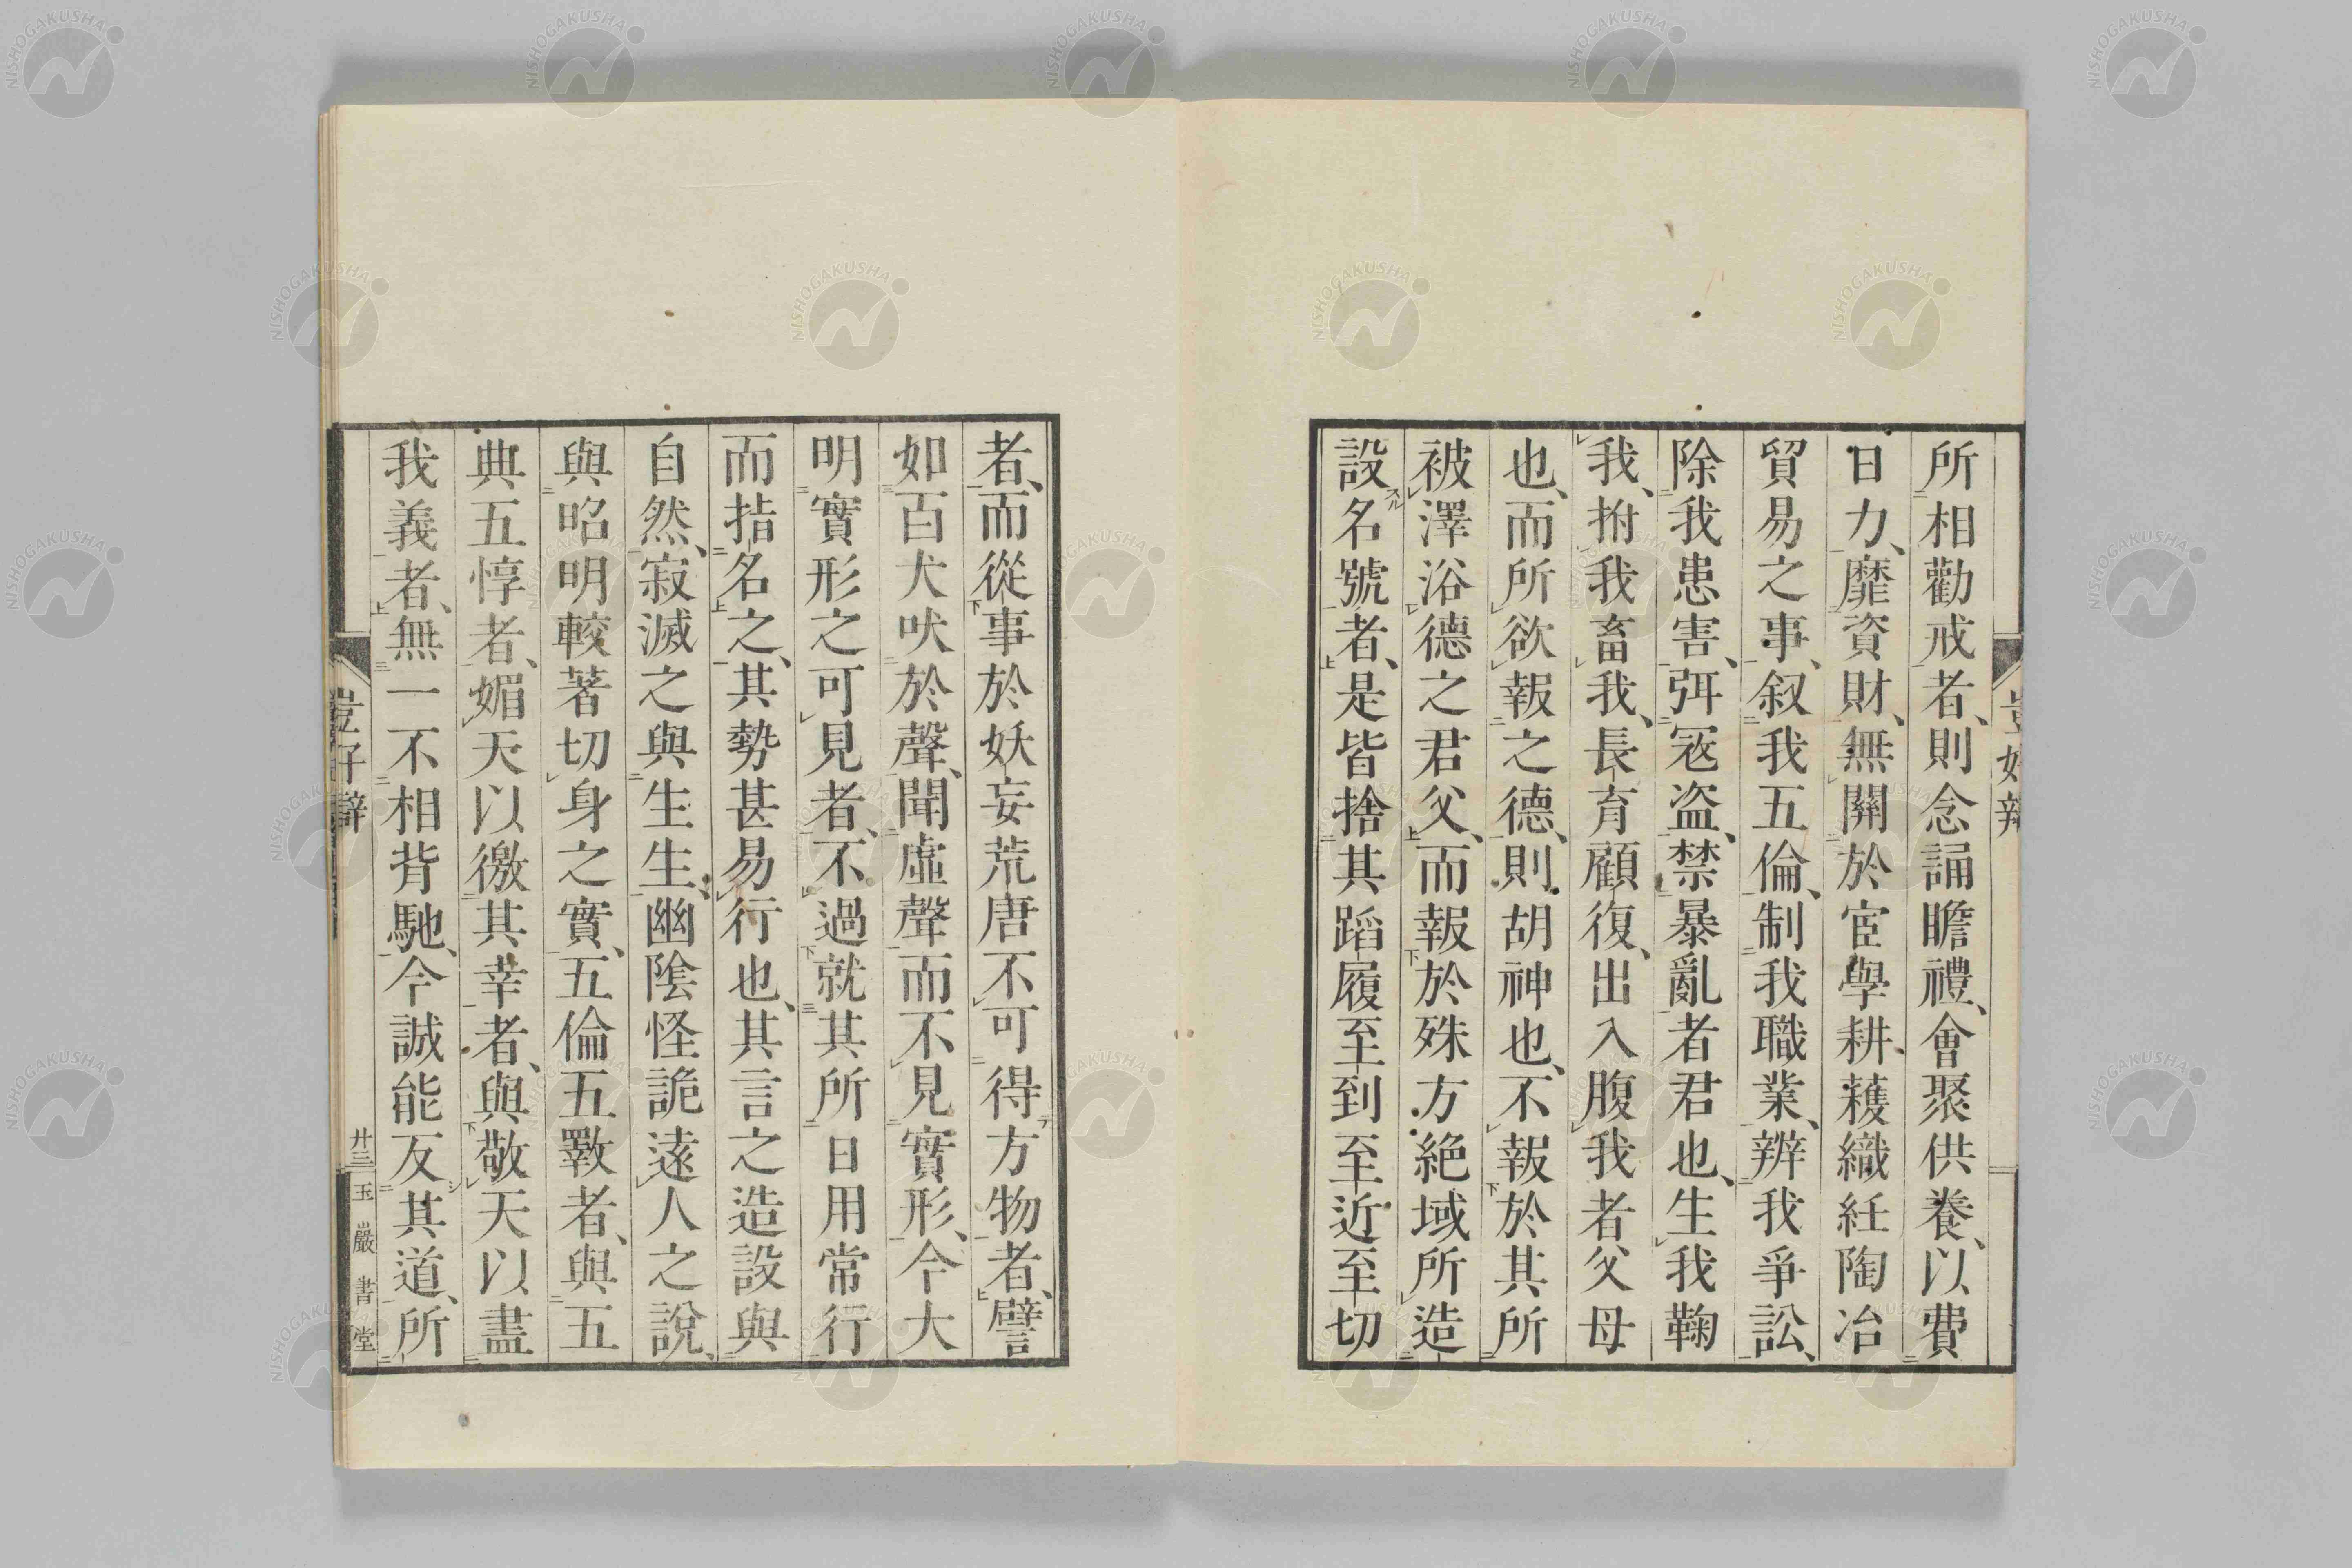 所相勸戒者、則念誦瞻禮、會聚供養、以費
日力、靡資財、無關於宦學耕、穫織紝陶冶
貿易之事、叙我五倫、制我職業、辨我爭訟、
除我患害、弭寇盗、禁暴亂者君也、生我鞠
我、拊我畜我、長育顧復、出入腹我者父母
也、而所欲報之德、則胡神也、不報於其所
被澤浴德之君父、而報於殊方絶域所造
設名號者、是皆捨其蹈履至到至近至切
者、而從事於妖妄荒唐不可得方物者、譬
如百犬吠於聲、聞虛聲而不見實形、今大
明實形之可見者、不過就其所日用常行
而指名之、其勢甚易行也、其言之造設與
自然、寂滅之與生生、幽陰怪詭遠人之說、
與昭明較著切身之實、五倫五斁者、與五
典五惇者、媚天以徼其幸者、與敬天以盡
我義者、無一不相背馳、今誠能反其道、所
豈好辯
廿三
玉巖書堂
NISHOGAKUSHA